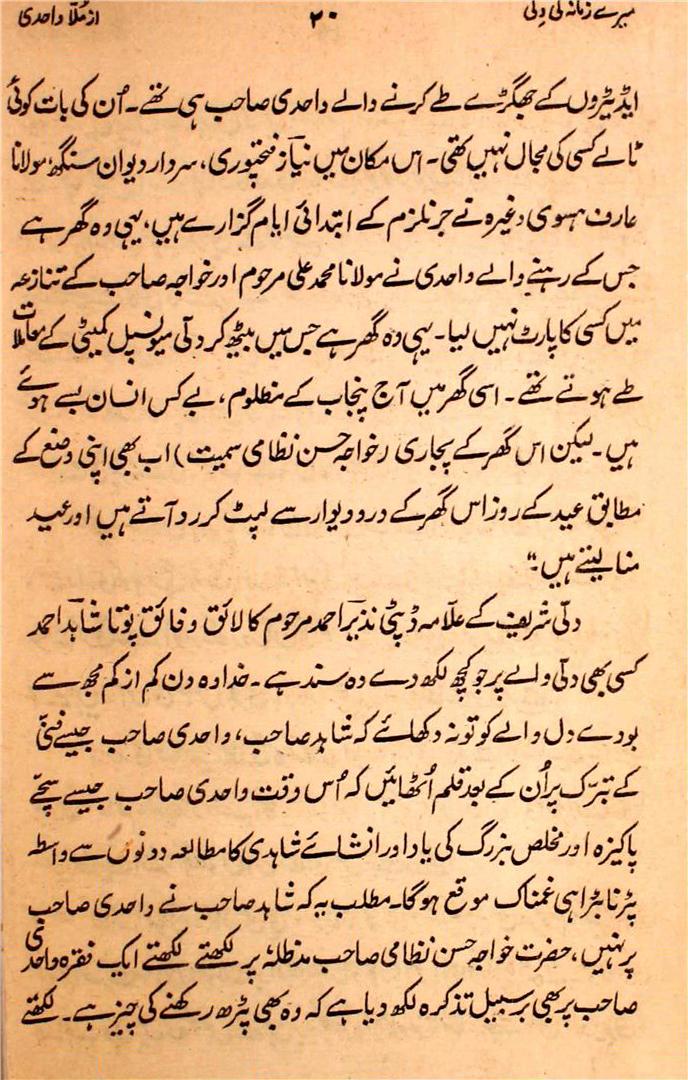 میرے زمانہ کی دلی ۲۰ از ملّا واحدی
ایڈیٹروں کے جھگڑے طے کرنے والے واحدی صاحب ہی تھے۔ اُن کی بات کوئی
ٹالے کسی کی مجال نہیں تھی۔ اس مکان میں نیاز فتحپوری، سردار دیوان سنگھ، مولانا
عارف ہسوی وغیرہ نے جرنلزم کے ابتدائی ایام گزارے ہیں، یہی وہ گھر ہے
جس کے رہنے والے واحدی نے مولانا محمد علی مرحوم اور خواجہ صاحب کے تنازعہ
میں کسی کا پارٹ نہیں لیا۔ یہی وہ گھر ہے جس میں بیٹھ کر دلّی میونسپل کمیٹی کے معاملات
طے ہوتے تھے۔ اسی گھر میں آج پنجاب کے مظلوم، بے کس انسان بسے ہوئے
ہیں۔ لیکن اس گھر کے پجاری (خواجہ حسن نظامی سمیت) اب بھی اپنی وضع کے
مطابق عید کے روز اس گھر کے در و دیوار سے لپٹ کر رو آتے ہیں اور عید
منا لیتے ہیں۔"
دلّی شریف کے علّامہ ڈپٹی نذیر احمد مرحوم کا لائق و فائق پوتا شاہد احمد
کسی بھی دلّی والے پر جو کچھ لکھ دے وہ سند ہے۔ خدا وہ دن کم از کم مجھ سے
بودے دل والے کو تو نہ دکھائے کہ شاہد صاحب، واحدی صاحب جیسے فنّی
کے تبرّک پر اُن کے بعد قلم اُٹھائیں کہ اُس وقت واحدی صاحب جیسے سچّے
پاکیزہ اور مخلص بزرگ کی یاد اور انشائے شاہدی کا مطالعہ دونوں سے واسطہ
پڑنا بڑا ہی غمناک موقع ہوگا۔ مطلب یہ کہ شاہد صاحب نے واحدی صاحب
پر نہیں، حضرت خواجہ حسن نظامی صاحب مدظلہٗ پر لکھتے لکھتے ایک فقرہ واحدی
صاحب پر بھی بر سبیل تذکرہ لکھ دیا ہے کہ وہ بھی پڑھ رکھنے کی چیز ہے۔ لکھتے